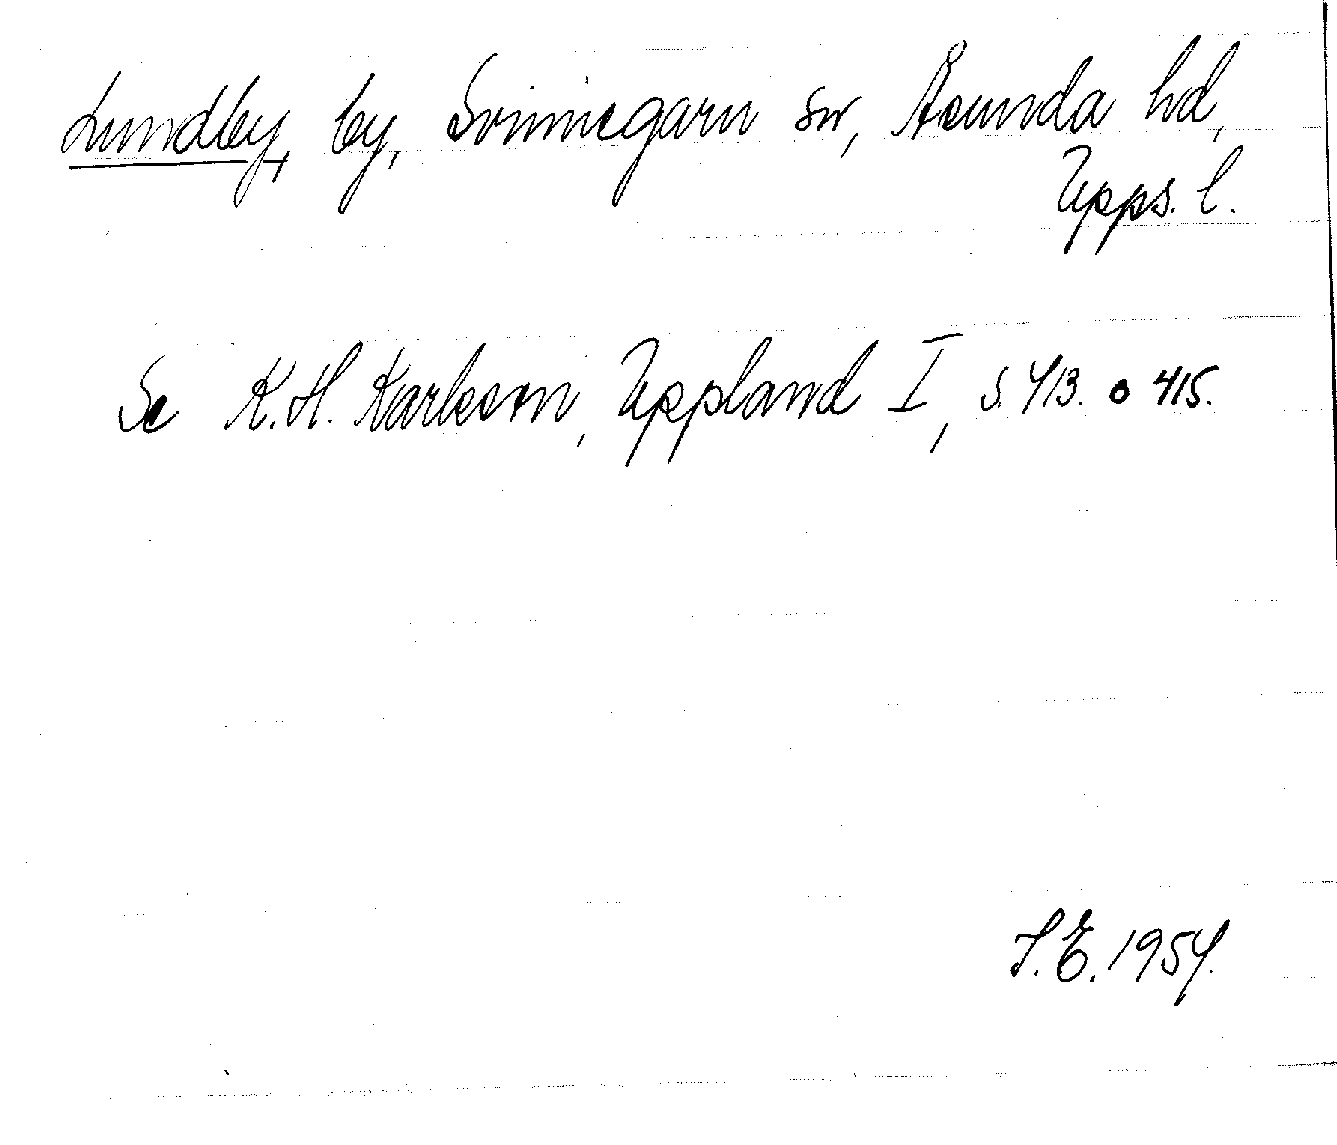 Lundby, by, Svinnegarn sn, Åsunda hd,
Upps. l.
Se K.H. Karlsson, Uppland I, s. 413. o 415.
S.E. 1954.